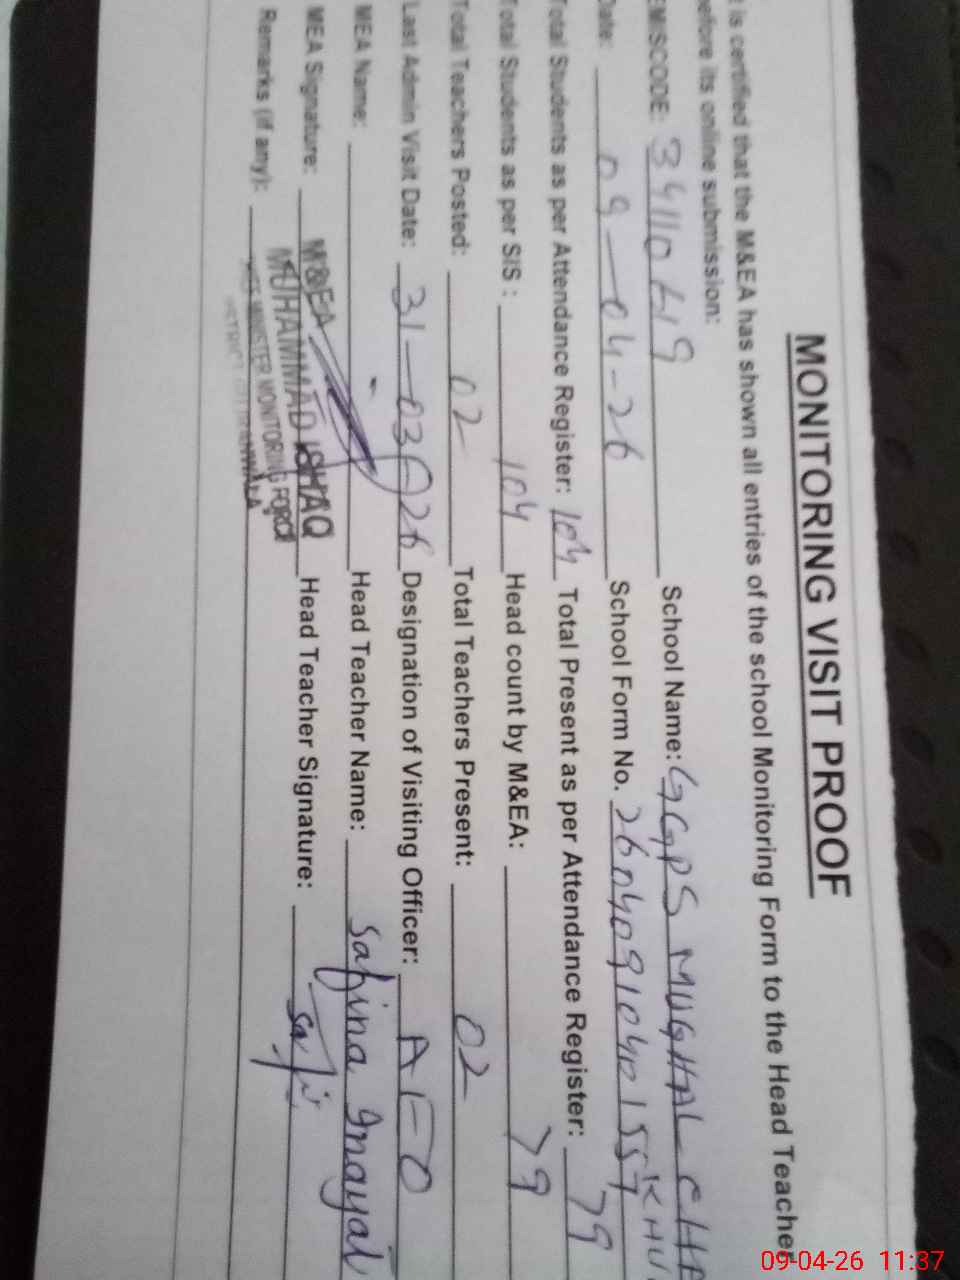 MONITORING VISIT PROOF
t is certified that the M&EA has shown all entries of the school Monitoring Form to the Head Teacher
before its online submission:
EMISCODE: 34110419 School Name: GGPS MUGHAL CHA
KHU
Date: 09-04-26 School Form No. 26040910401557
Total Students as per Attendance Register: 104 Total Present as per Attendance Register: 79
Total Students as per SIS : 104 Head count by M&EA: 79
Total Teachers Posted: 02 Total Teachers Present: 02
Last Admin Visit Date: 31-03-26 Designation of Visiting Officer: AEO
MEA Name: Head Teacher Name: Safina Inayat
MEA Signature: Head Teacher Signature:
M&EA
MUHAMMAD ISHAQ
Remarks (if any):
MINISTER MONITORING FORCE
09-04-26 11:37